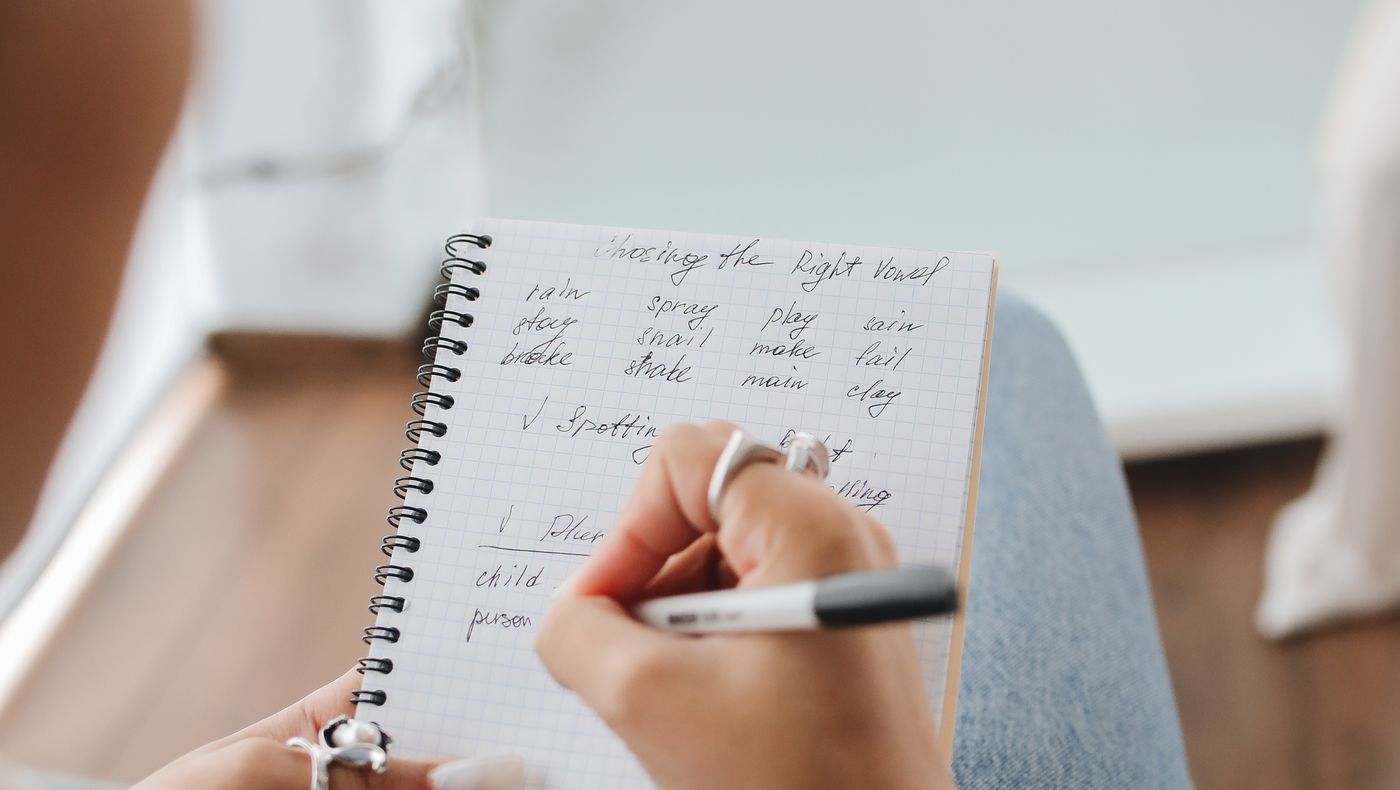 Chosing the Right Vowel
rain spray play sain
stay snail make fail
brake shake main clay
√ Spottin
lling
√
child
person